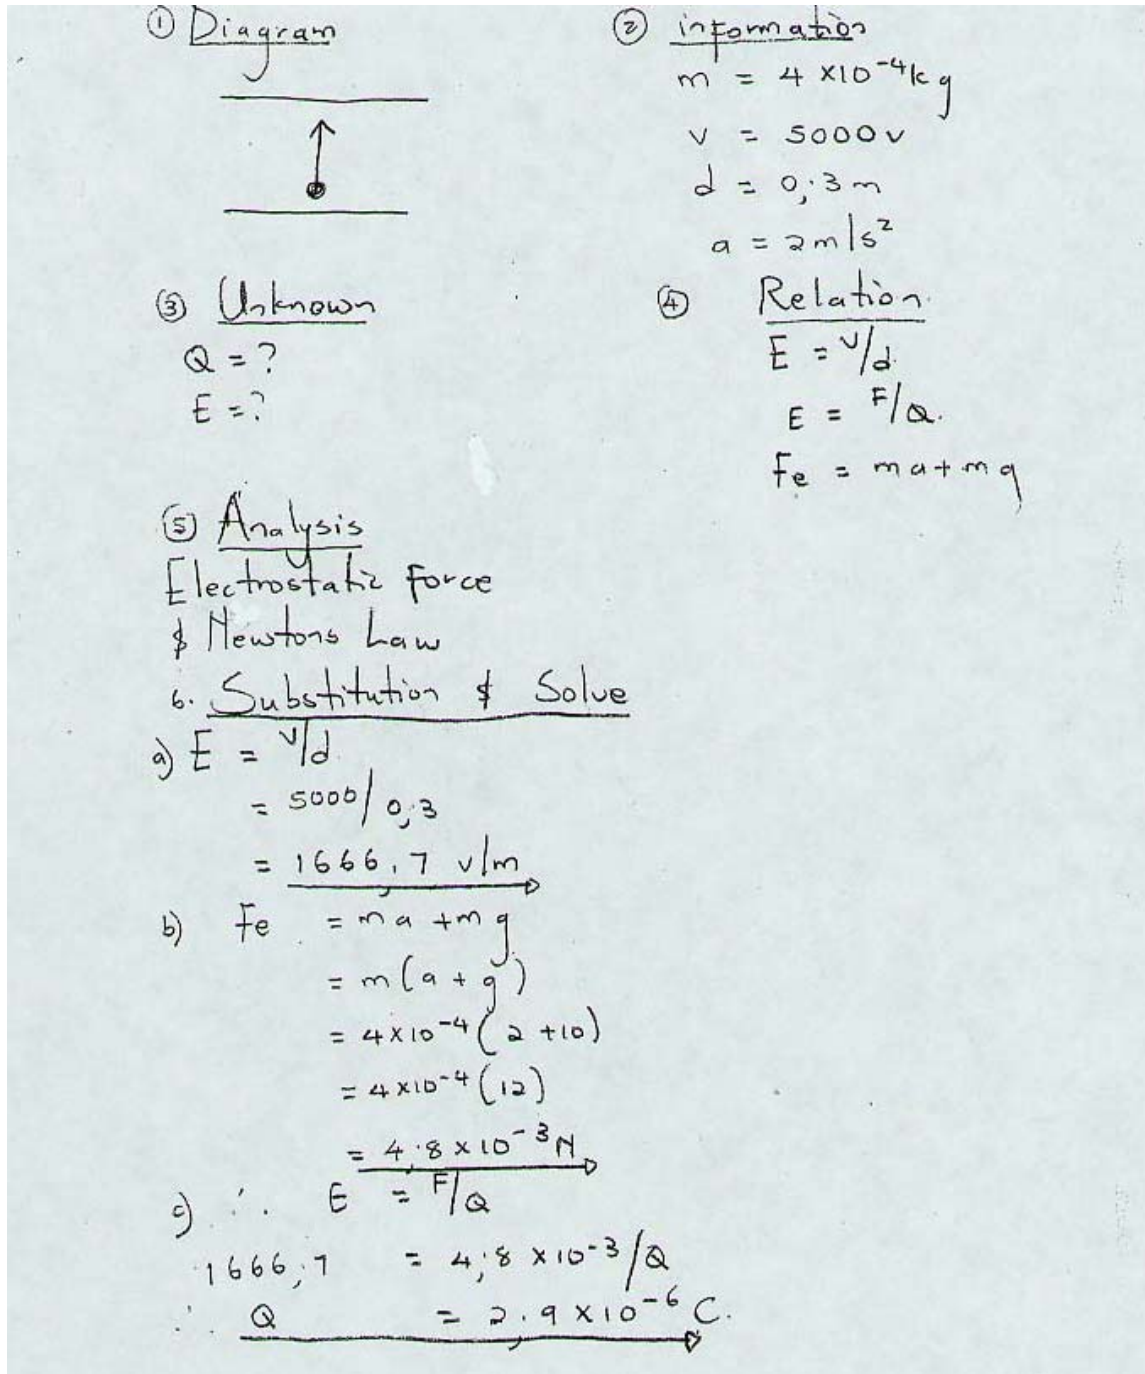 ① Diagram
② information
m = 4 ×10⁻⁴kg
v = 5000v
d = 0,3m
a = 2m/s²
③ Unknown
Q = ?
E = ?
④ Relation
E = v/d
E = F/Q.
Fe = ma+mg
⑤ Analysis
Electrostatic force
& Newtons Law
6. Substitution & Solve
a) E = v/d
= 5000/0,3
= 1666,7 v/m
b) Fe = ma +mg
= m(a + g)
= 4×10⁻⁴(2 +10)
= 4×10⁻⁴(12)
= 4,8 × 10⁻³N
c) ∴ E = F/Q
1666,7 = 4,8 × 10⁻³/Q
∴ Q = 2,9 ×10⁻⁶ C.